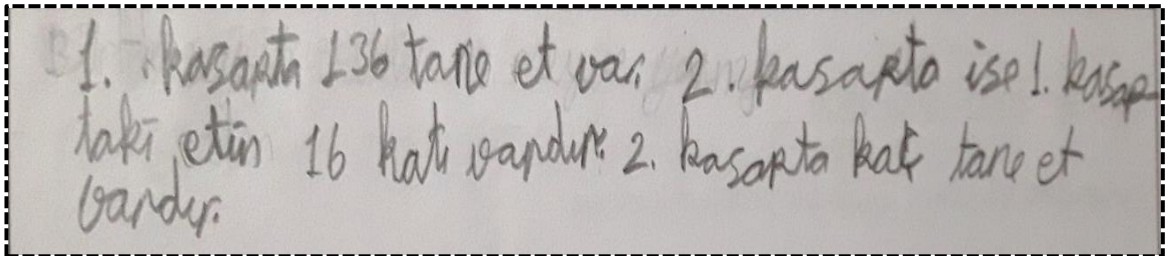 1. kasapta 136 tane et var. 2. kasapta ise 1. kasap-
taki etin 16 katı vardır. 2. kasapta kaç tane et
vardır.